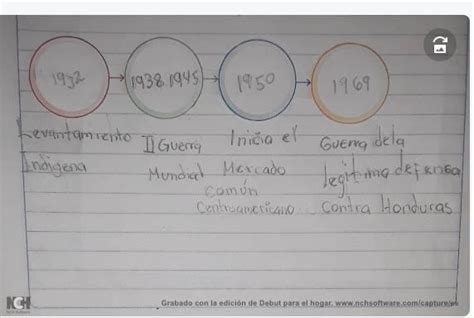 1932
1938 1945
1950
1969
Levantamiento
Indigena
II Guerra
Mundial
Inicia el
Mercado
común
Centroamericano
Guerra dela
legitima defensa
Contra Honduras
NCH
Grabado con la edición de Debut para el hogar. www.nchsoftware.com/capture/es